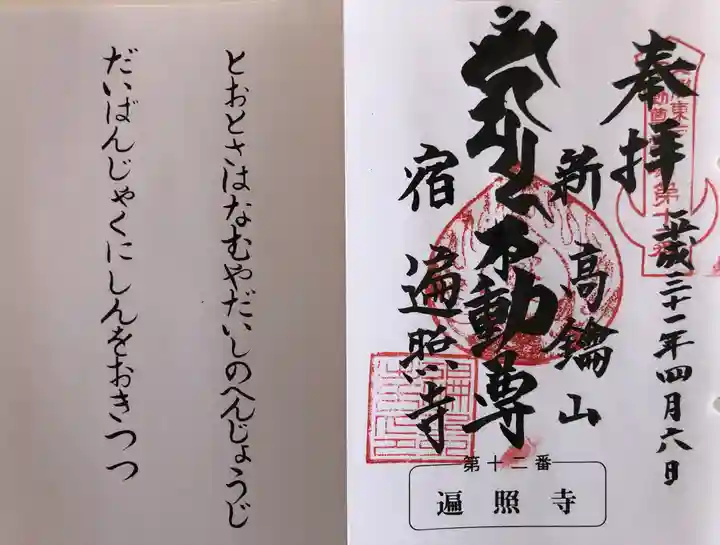 奉拝
平成三十一年四月六日
新高鑰山
不動尊
宿 遍照寺
第十二番
遍照寺
とおとさはなむやだいしのへんじょうじ
だいばんじゃくにしんをおきつつ